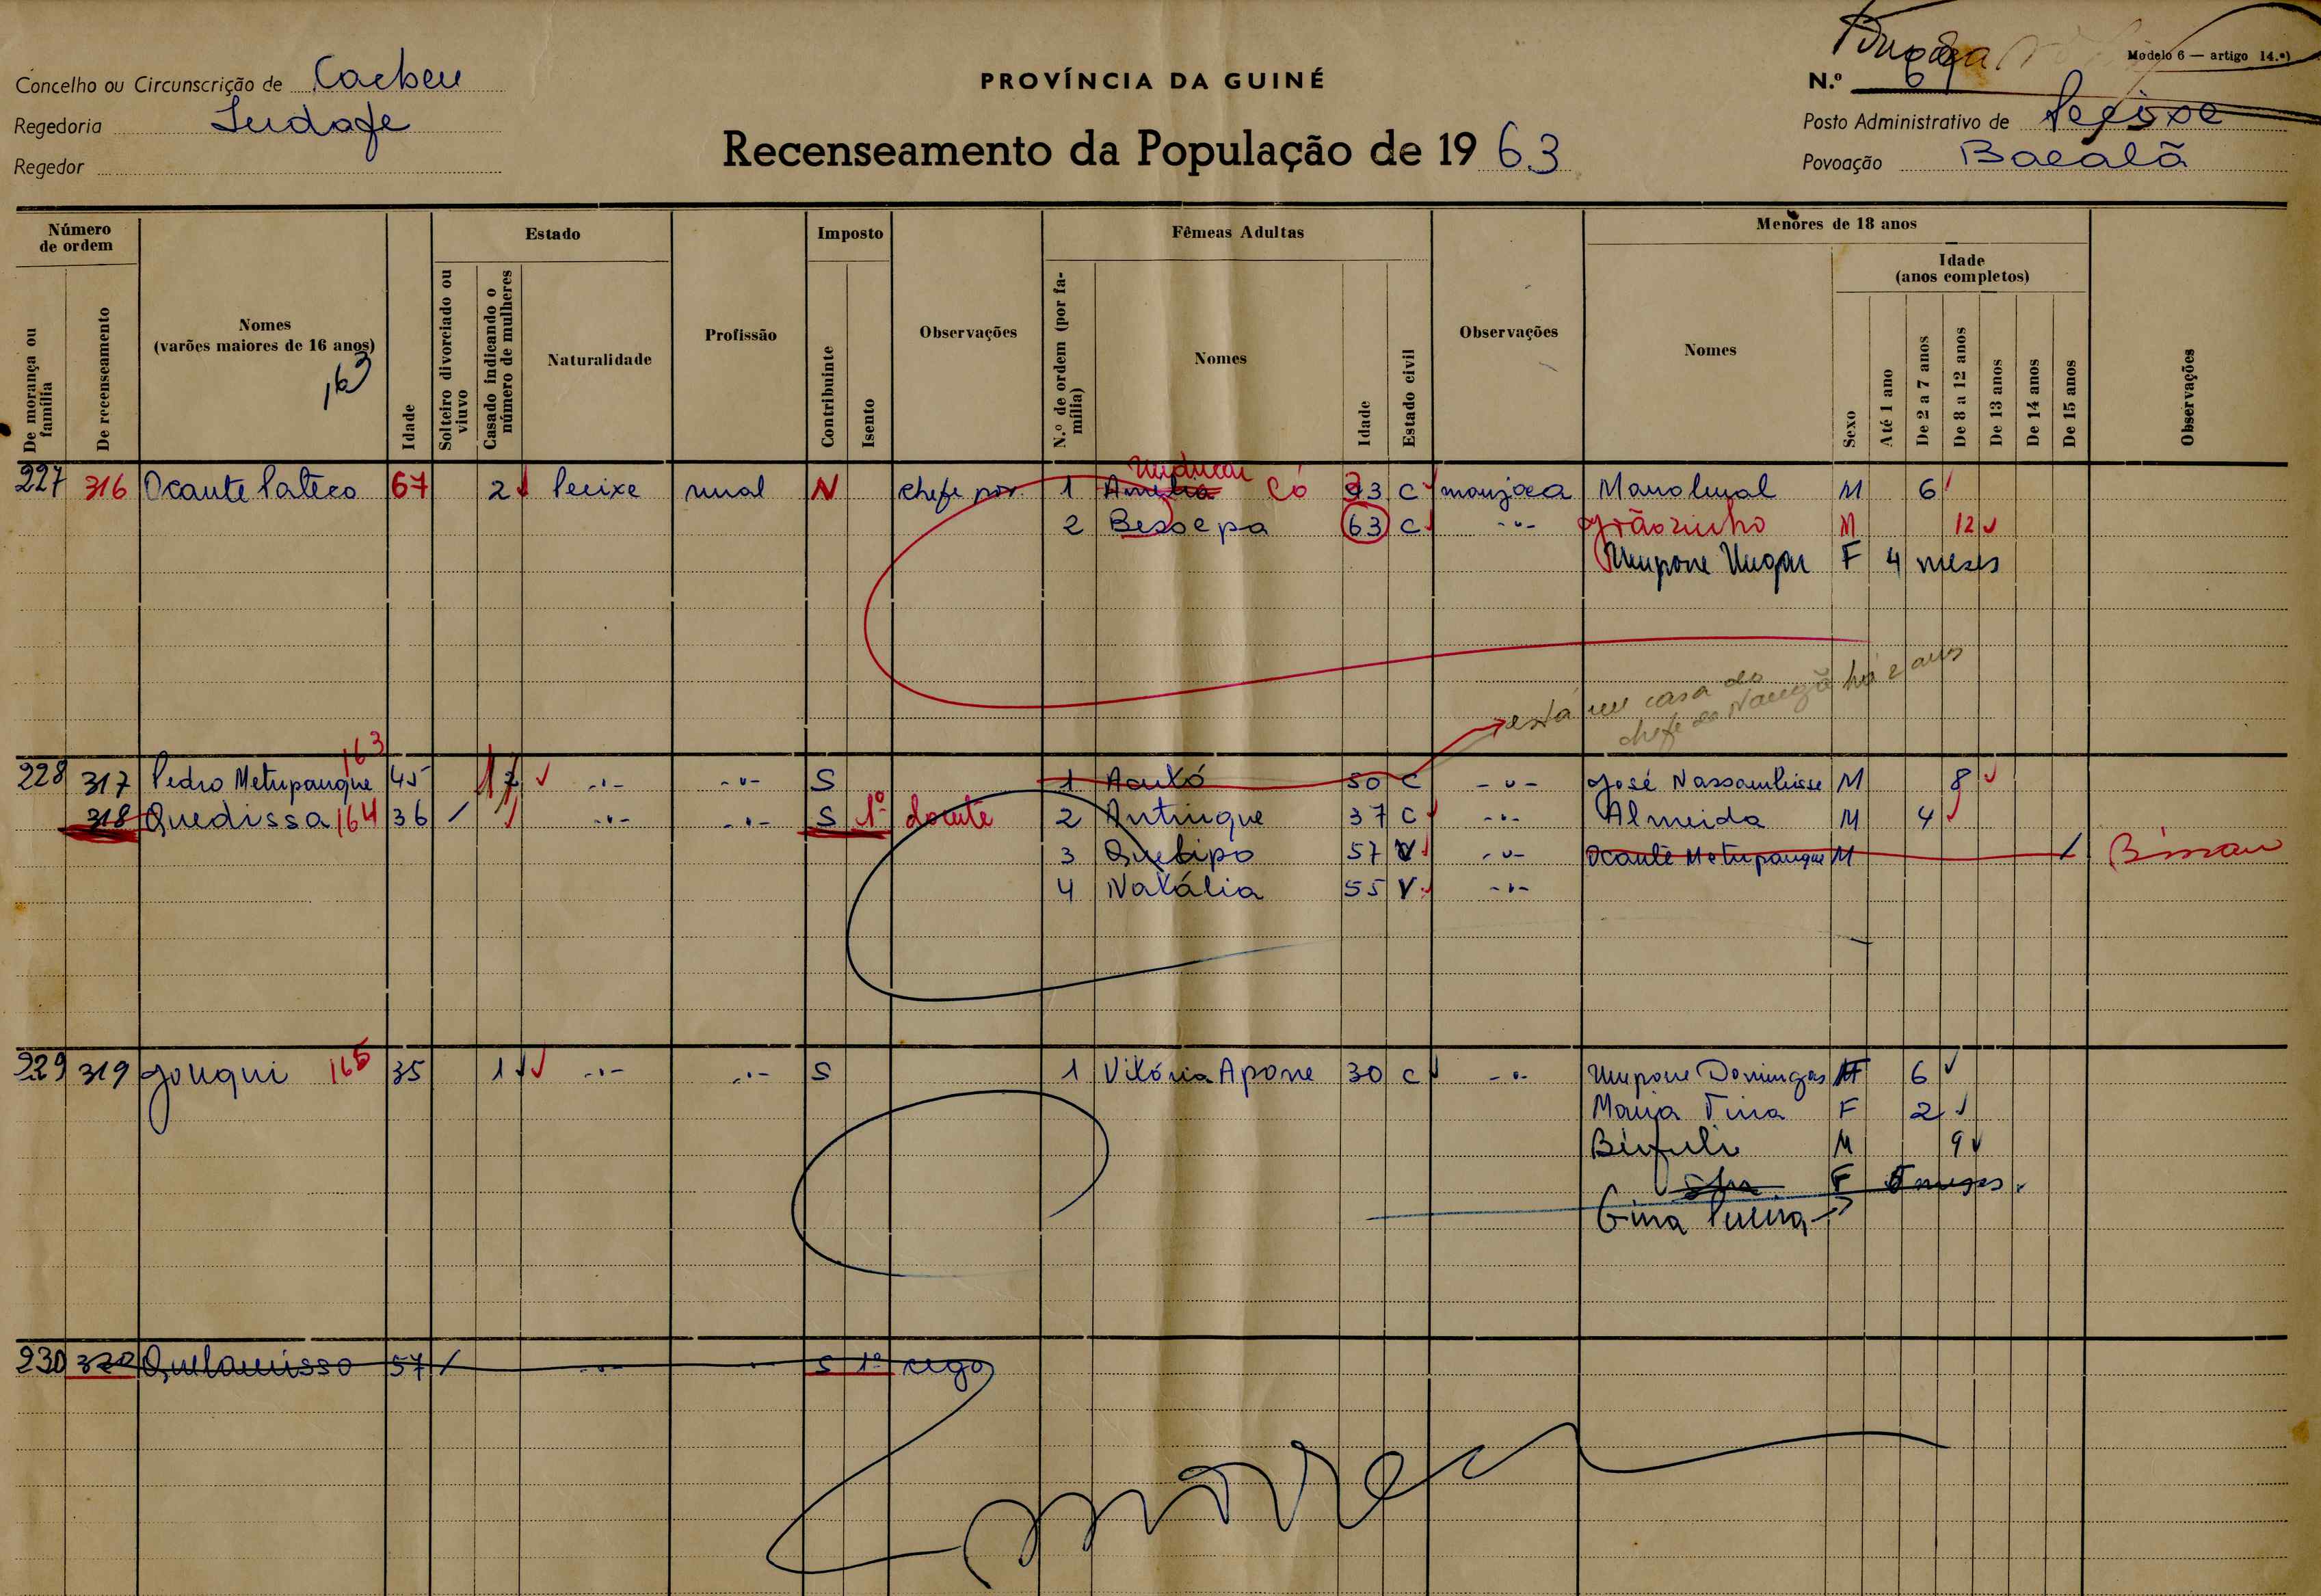 Modelo 6 — artigo 14.º)
Concelho ou Circunscrição de Cacheu
PROVÍNCIA DA GUINÉ
N.º 6
Regedoria
Posto Administrativo de Pecixe
Recenseamento da População de 1963
Regedor
Povoação
Número de ordem
Estado
Imposto
Fêmeas Adultas
Menores de 18 anos
Idade
(anos completos)
De morança ou família
De recenseamento
Nomes
(varões maiores de 16 anos)
Idade
Solteiro divorciado ou viuvo
Casado indicando o número de mulheres
Naturalidade
Profissão
Contribuinte
Isento
Observações
N.º de ordem (por família)
Nomes
Idade
Estado civil
Observações
Nomes
Sexo
Até 1 ano
De 2 a 7 anos
De 8 a 12 anos
De 13 anos
De 14 anos
De 15 anos
Observações
163
227 316 Ocante Pateco 67 2 Pecixe rural N chefe pov. 1 Amélia Có 33 C manjaca Manolual M 6
2 Bessepa 63 C -"- Grãozinho M 12
F 4 meses
está em casa do
chefe de há 2 anos
163
228 317 Pedro Metupanque 45 -"- -"- S 1 50 C -"- José M 8
318 Quedissa 164 36 / -"- -"- S 1º doente 2 Antinque 37 C -"- Almeida M 4
3 Quebipo 57 V -"- Ocante Metupanque M / Bissau
4 Natália 55 V -"-
229 319 Jonqui 165 35 1 -"- -"- S 1 Vitória Apone 30 C -"- Mupone Domingas F 6
Maria Tina F 2
Binfuli M 9
F 5 meses.
230 320 57 / -"- -"- S 1º cego
morreu